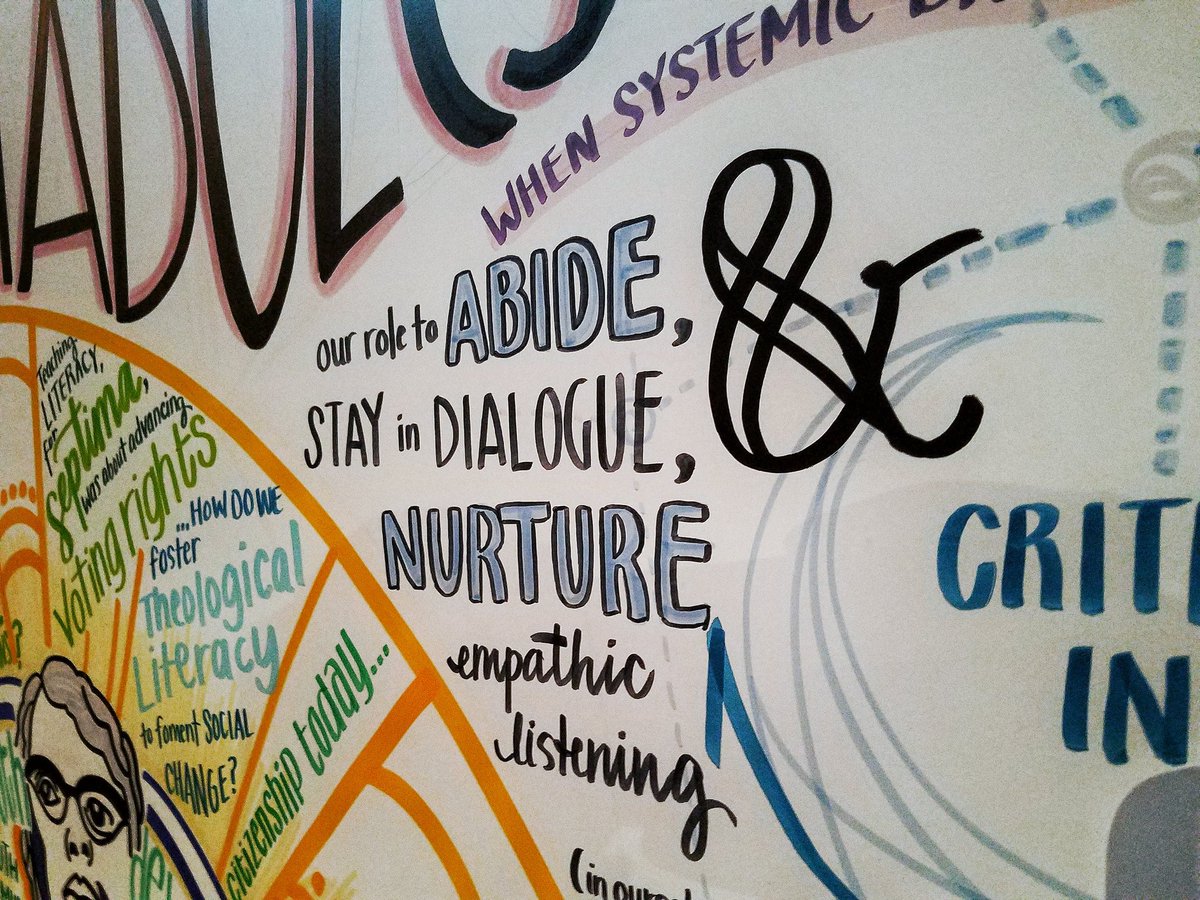 WHEN SYSTEMIC
our role to ABIDE,
STAY in DIALOGUE,
&
NURTURE
empathic
listening
(in
Teaching
LITERACY,
for
Septima,
was about advancing
Voting rights
...HOW DO WE
foster
Theological
Literacy
to foment SOCIAL
CHANGE?
citizenship today...
IN